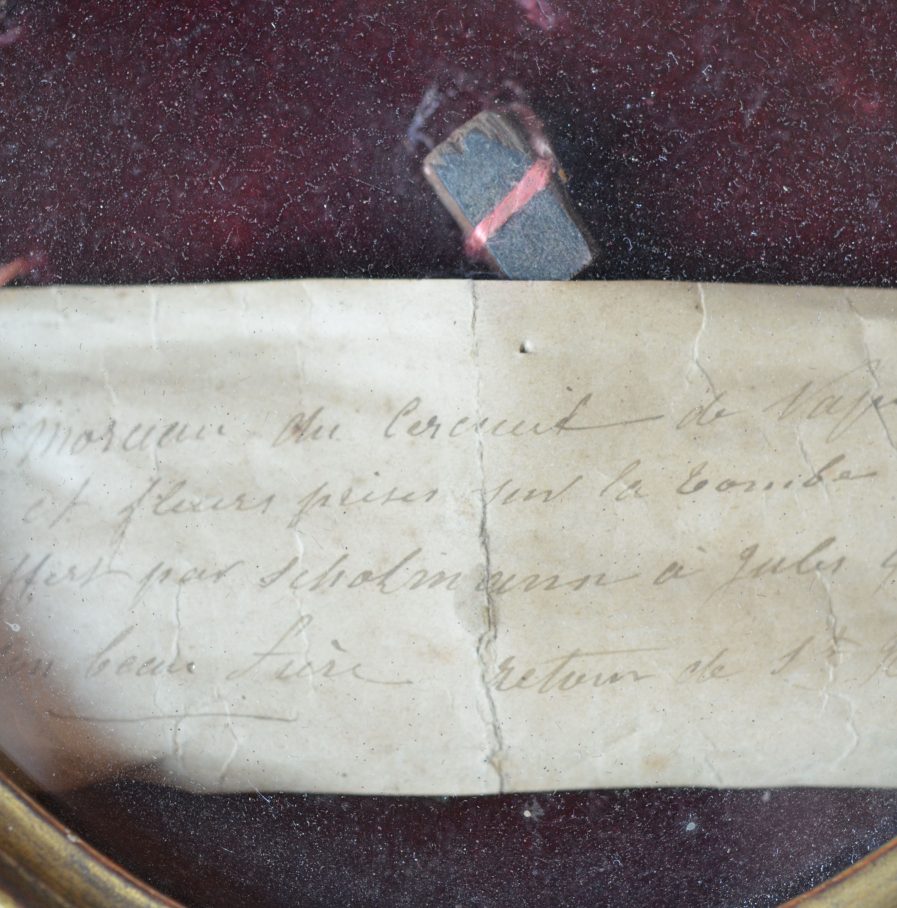 morceau du Cercueil de Nap
et fleurs prises sur la tombe
ffert par Scholmann à Jules
beau frère retour de St